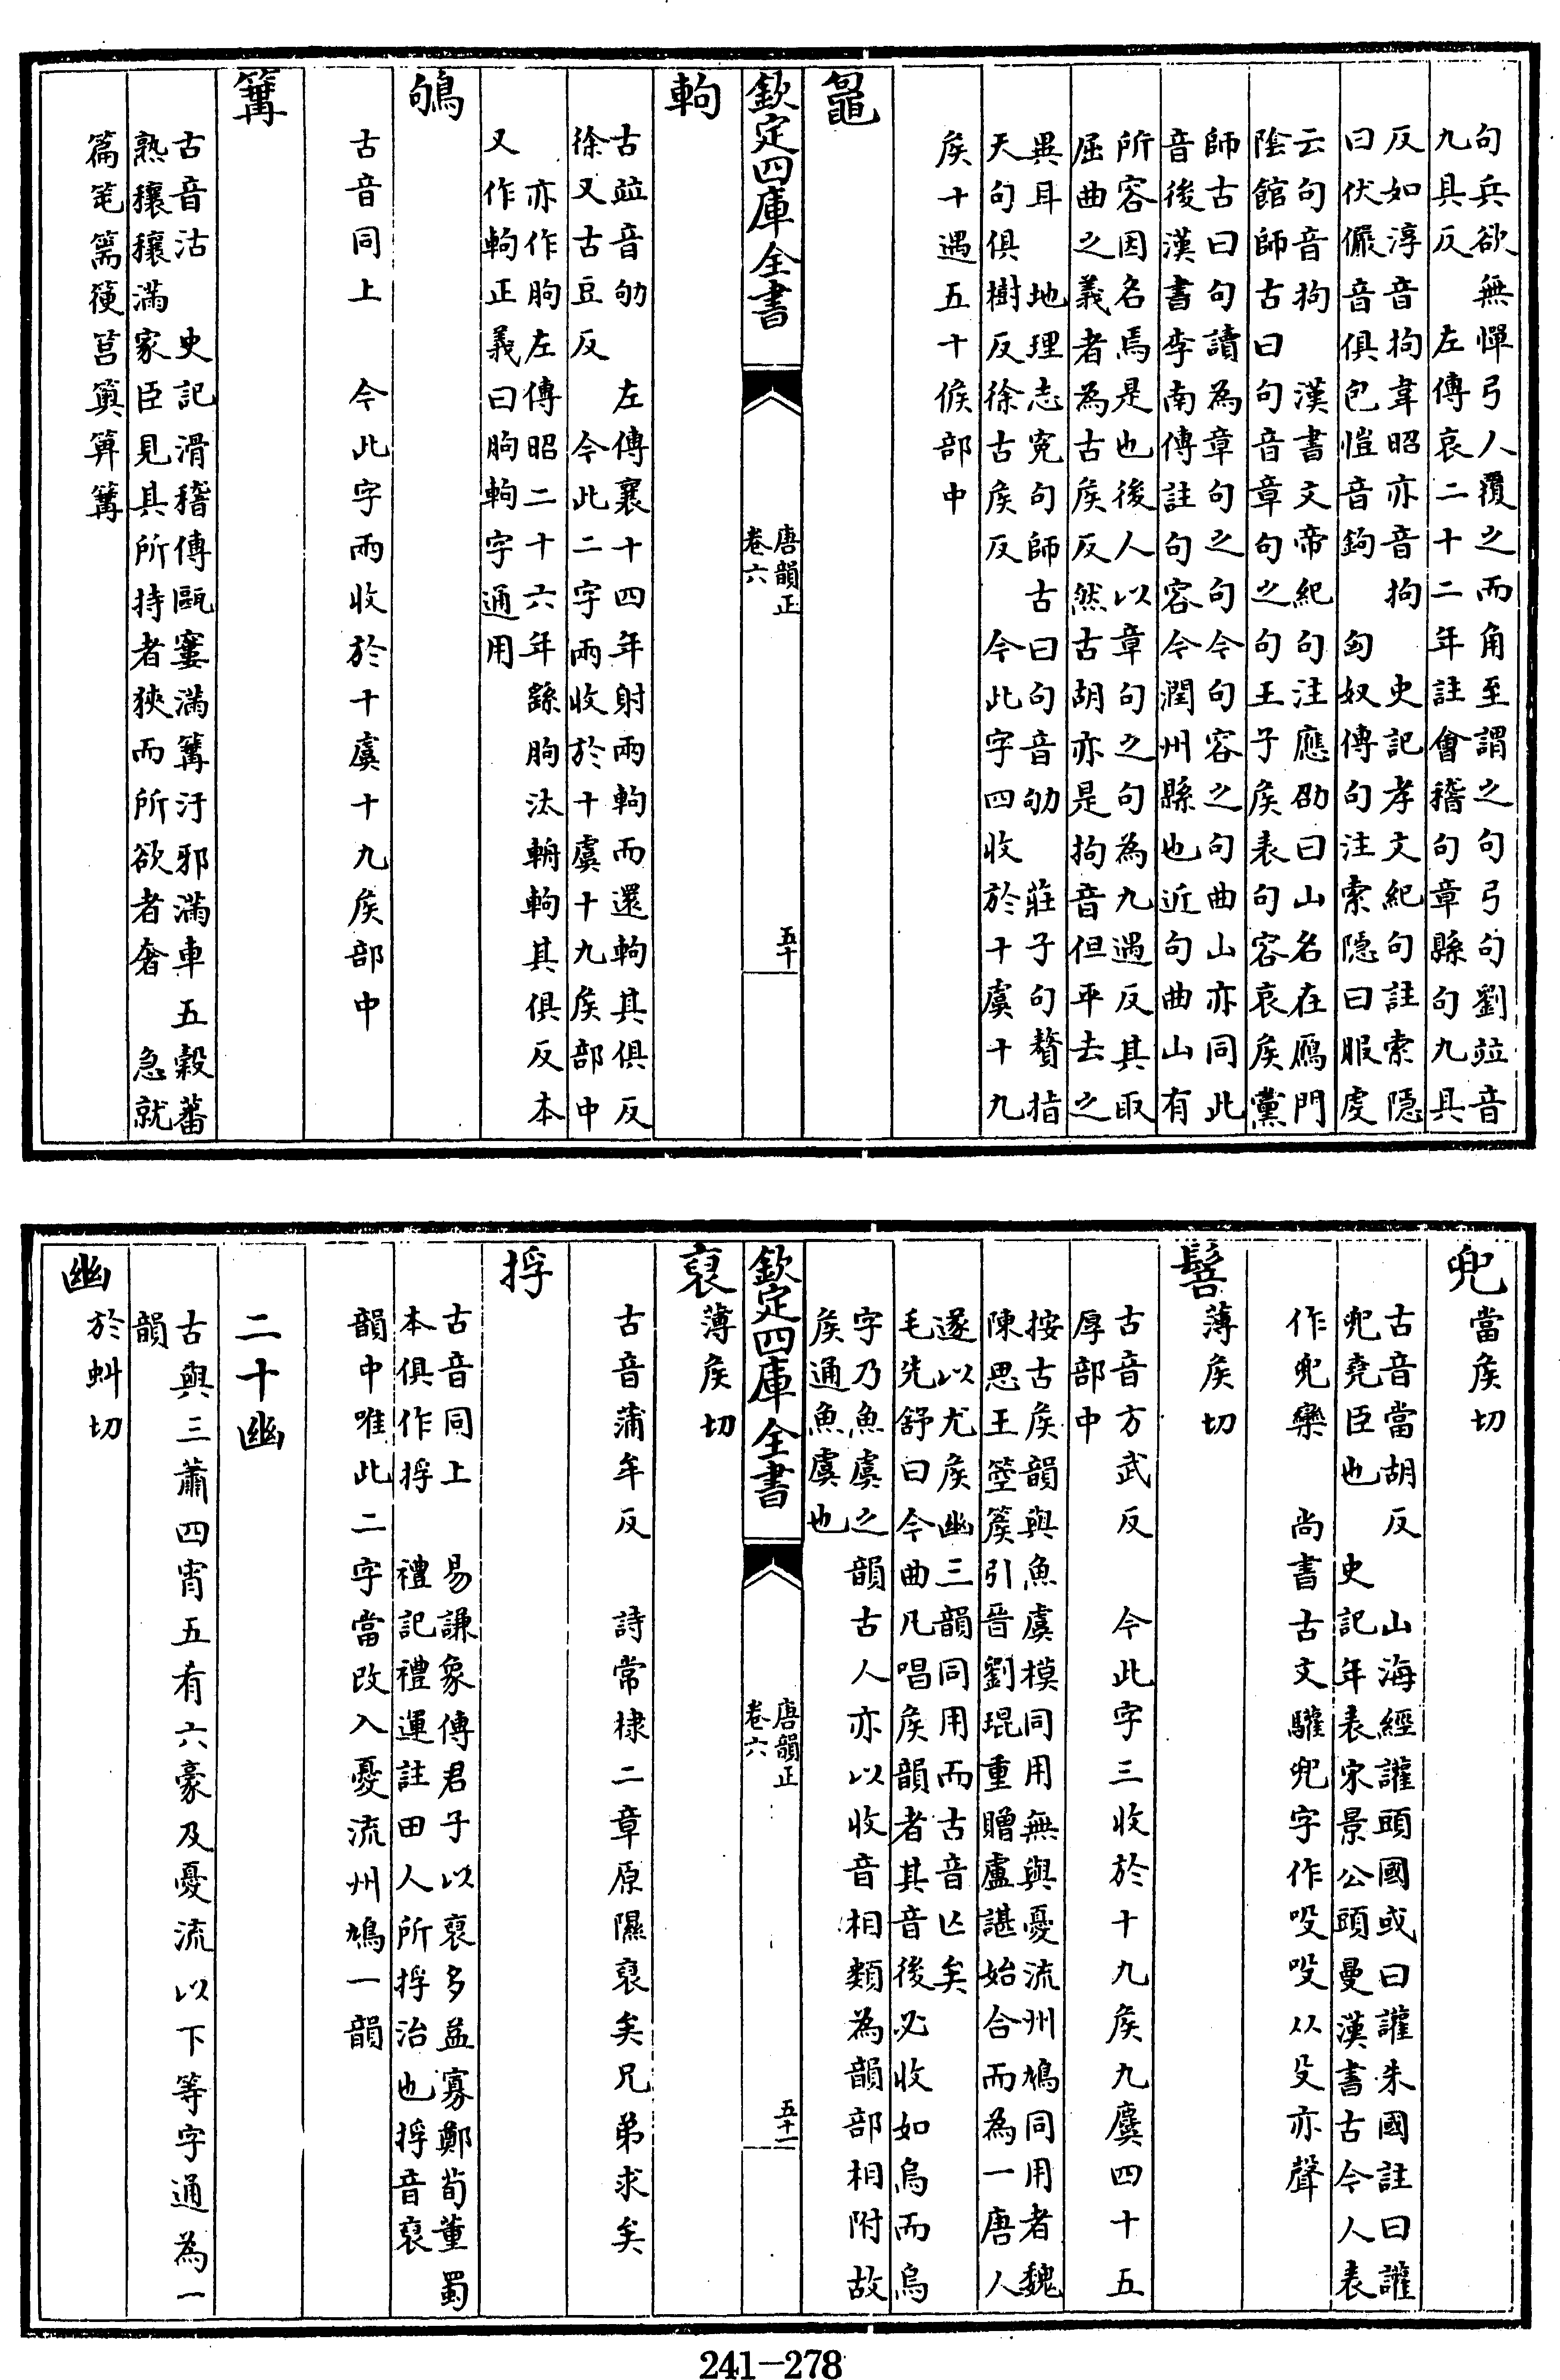 句兵欲無憚弓人覆之而角至謂之句弓句劉竝音
九具反　左傳哀二十二年註會稽句章縣句九具
反如淳音拘韋昭亦音拘　史記孝文紀句註索隱
曰伏儼音俱包愷音鉤　匈奴傳句注索隱曰服虔
云句音拘　漢書文帝紀句注應劭曰山名在鴈門
陰館師古曰句音章句之句王子矦表句容哀矦黨
師古曰句讀為章句之句今句容之句曲山亦同此
音後漢書李南傳註句容今潤州縣也近句曲山有
所容因名焉是也後人以章句之句為九遇反其取
屈曲之義者為古矦反然古胡亦是拘音但平去之
異耳　地理志寃句師古曰句音劬　莊子句贅指
天句俱樹反徐古矦反　今此字四收於十虞十九
矦十遇五十候部中
鼅
欽定四庫全書
唐韻正
卷六
五十
軥
古竝音劬　左傳襄十四年射兩軥而還軥其俱反
徐又古豆反　今此二字兩收於十虞十九矦部中
亦作胊左傳昭二十六年繇胊汰輈軥其俱反本
又作軥正義曰胊軥字通用
鴝
古音同上　今此字兩收於十虞十九矦部中
篝
古音沽　史記滑稽傳甌窶滿篝汙邪滿車五穀蕃
熟穰穰滿家臣見其所持者狹而所欲者奢　急就
篇笔篅箯筥䉛箅篝
兜當矦切
古音當胡反　山海經讙頭國或曰讙朱國註曰讙
兜堯臣也　史記年表宋景公頭曼漢書古今人表
作兜欒　尚書古文驩兜字作吺吺从殳亦聲
髻薄矦切
古音方武反　今此字三收於十九矦九麌四十五
厚部中
按古矦韻與魚虞模同用無與憂流州鳩同用者魏
陳思王箜篌引晉劉琨重贈盧諶始合而為一唐人
遂以尤矦幽三韻同用而古音亾矣
毛先舒曰今曲凡唱矦韻者其音後必收如烏而烏
字乃魚虞之韻古人亦以收音相類為韻部相附故
矦通魚虞也
欽定四庫全書
唐韻正
卷六
五十一
裒薄矦切
古音蒲牟反　詩常棣二章原隰裒矣兄弟求矣
捊
古音同上　易謙象傳君子以裒多益寡鄭荀董蜀
本俱作捊　禮記禮運註田人所捊治也捊音裒
韻中唯此二字當改入憂流州鳩一韻
二十幽
古與三蕭四宵五肴六豪及憂流以下等字通為一
韻
幽於虯切
241—278